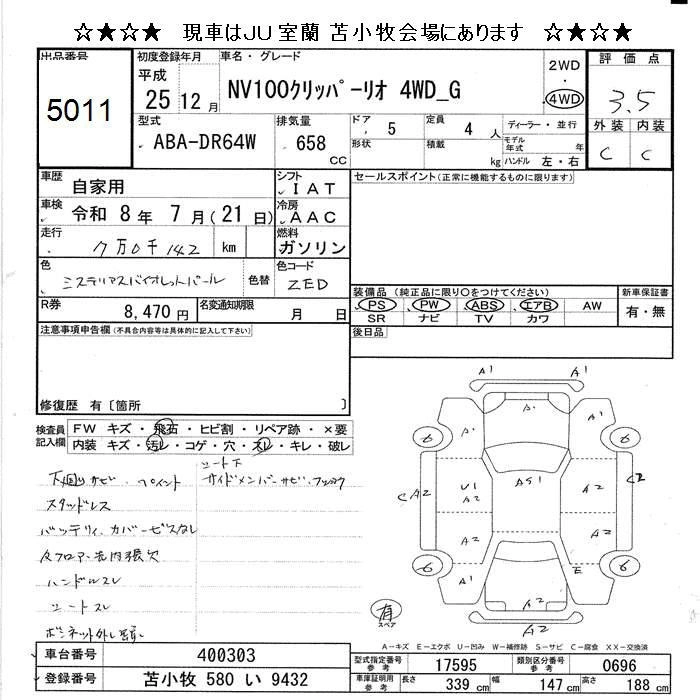 ☆★☆★ 現車はJU室蘭 苫小牧会場にあります ☆★☆★
出品番号
5011
初度登録年月
平成
25 12 月
車名・グレード
NV100クリッパーリオ 4WD_G
2WD
4WD
評価点
3.5
外装 内装
C C
型式
ABA-DR64W
排気量
658
CC
ドア
5
形状
定員
4 人
積載
kg
ディーラー・並行
モデル年式 年
ハンドル 左・右
車歴
自家用
シフト
IAT
車検
令和 8 年 7 月 ( 21 日)
冷房
AAC
走行
7万0千142
km
燃料
ガソリン
色
ミステリアスバイオレットパール
色替
色コード
ZED
R券
8,470 円
名変通知期限
月 日
セールスポイント(正常に機能するものに限ります)
装備品 (純正品に限り○をつけてください)
PS PW ABS エアB AW
SR ナビ TV カワ
新車保証書
有・無
後日品
注意事項申告欄(不具合内容等は具体的に記入して下さい)
修復歴 有〔箇所 〕
検査員
記入欄
FW キズ・飛石・ヒビ割・リペア跡・×要
内装 キズ・汚レ・コゲ・穴・スレ・キレ・破レ
下廻りサビ・ペイント
スタッドレス
バッテリィカバービスなし
反フロアー荒内張欠
ハンドルスレ
シートスレ
シート下
サイドメンバーサビ
A1 A1
A1
6 6
A1 A1
C A2 U1 A2 A51 A2 C2
A2 A2
6 6
A1 A2 E
A2
有
スペア
A-キズ E-エクボ U-凹み W-補修跡 S-サビ C-腐食 XX-交換済
車台番号
400303
登録番号
苫小牧 580 い 9432
型式指定番号
参考
17595
類別区分番号
参考
0696
車庫証明用
参考
長さ 339 cm
幅 147 cm
高さ 188 cm